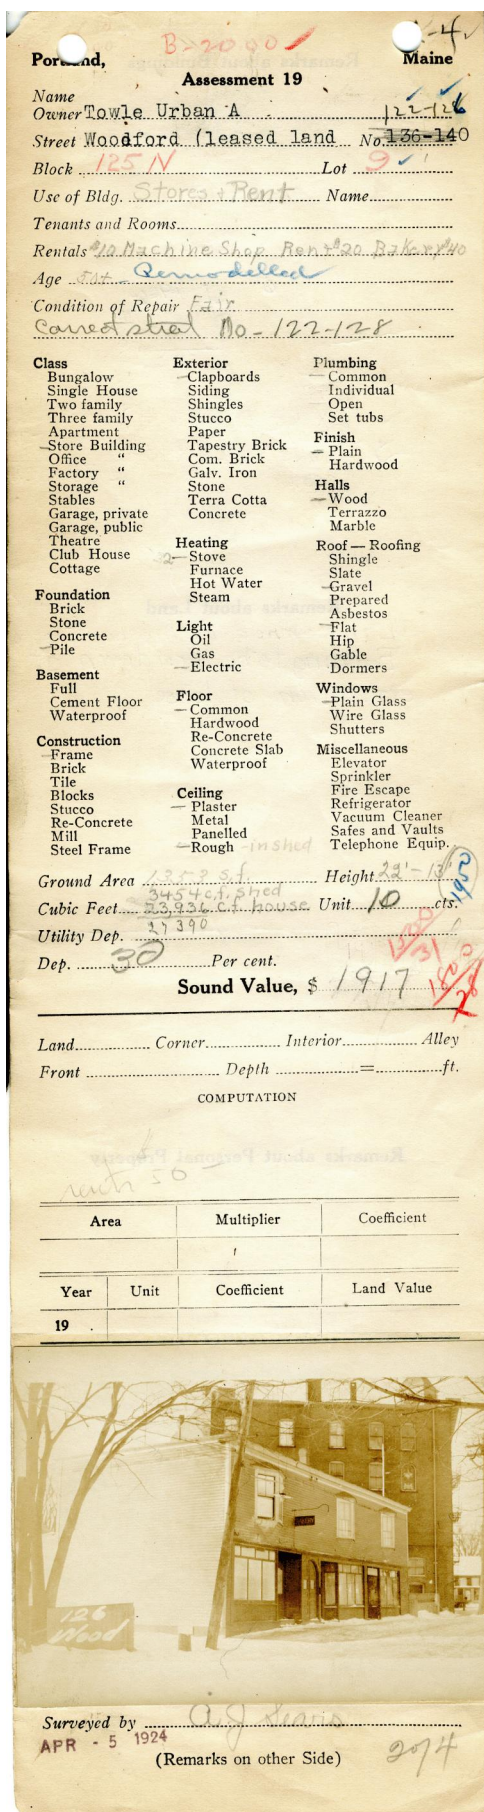 B-2000
Portland, Maine
Assessment 19
Name
Owner Towle Urban A 122-126
Street Woodford (leased land No. 136-140
Block 125 N Lot 9
Use of Bldg. Stores + Rent Name
Tenants and Rooms
Rentals $10 Machine Shop Rent $20 Bakery $40
Age 50+ - Remodelled
Condition of Repair Fair
Correct street No - 122-128
Class
Bungalow
Single House
Two family
Three family
Apartment
Store Building
Office "
Factory "
Storage "
Stables
Garage, private
Garage, public
Theatre
Club House
Cottage
Foundation
Brick
Stone
Concrete
Pile
Basement
Full
Cement Floor
Waterproof
Construction
Frame
Brick
Tile
Blocks
Stucco
Re-Concrete
Mill
Steel Frame
Exterior
Clapboards
Siding
Shingles
Stucco
Paper
Tapestry Brick
Com. Brick
Galv. Iron
Stone
Terra Cotta
Concrete
Heating
2 - Stove
Furnace
Hot Water
Steam
Light
Oil
Gas
Electric
Floor
Common
Hardwood
Re-Concrete
Concrete Slab
Waterproof
Ceiling
Plaster
Metal
Panelled
Rough - in shed
Plumbing
Common
Individual
Open
Set tubs
Finish
Plain
Hardwood
Halls
Wood
Terrazzo
Marble
Roof — Roofing
Shingle
Slate
Gravel
Prepared
Asbestos
Flat
Hip
Gable
Dormers
Windows
Plain Glass
Wire Glass
Shutters
Miscellaneous
Elevator
Sprinkler
Fire Escape
Refrigerator
Vacuum Cleaner
Safes and Vaults
Telephone Equip.
Ground Area 1358 s.f. Height 22' - 13'
3454 c.f. shed
Cubic Feet 23,936 c.f. house Unit 10 cts. 1950
27390
Utility Dep.
Dep. 30 Per cent.
Sound Value, $ 1917
Land Corner Interior Alley
Front Depth = ft.
COMPUTATION
Area Multiplier Coefficient
Year Unit Coefficient Land Value
19
126
Wood
Surveyed by A J Searis
APR - 5 1924
(Remarks on other Side)